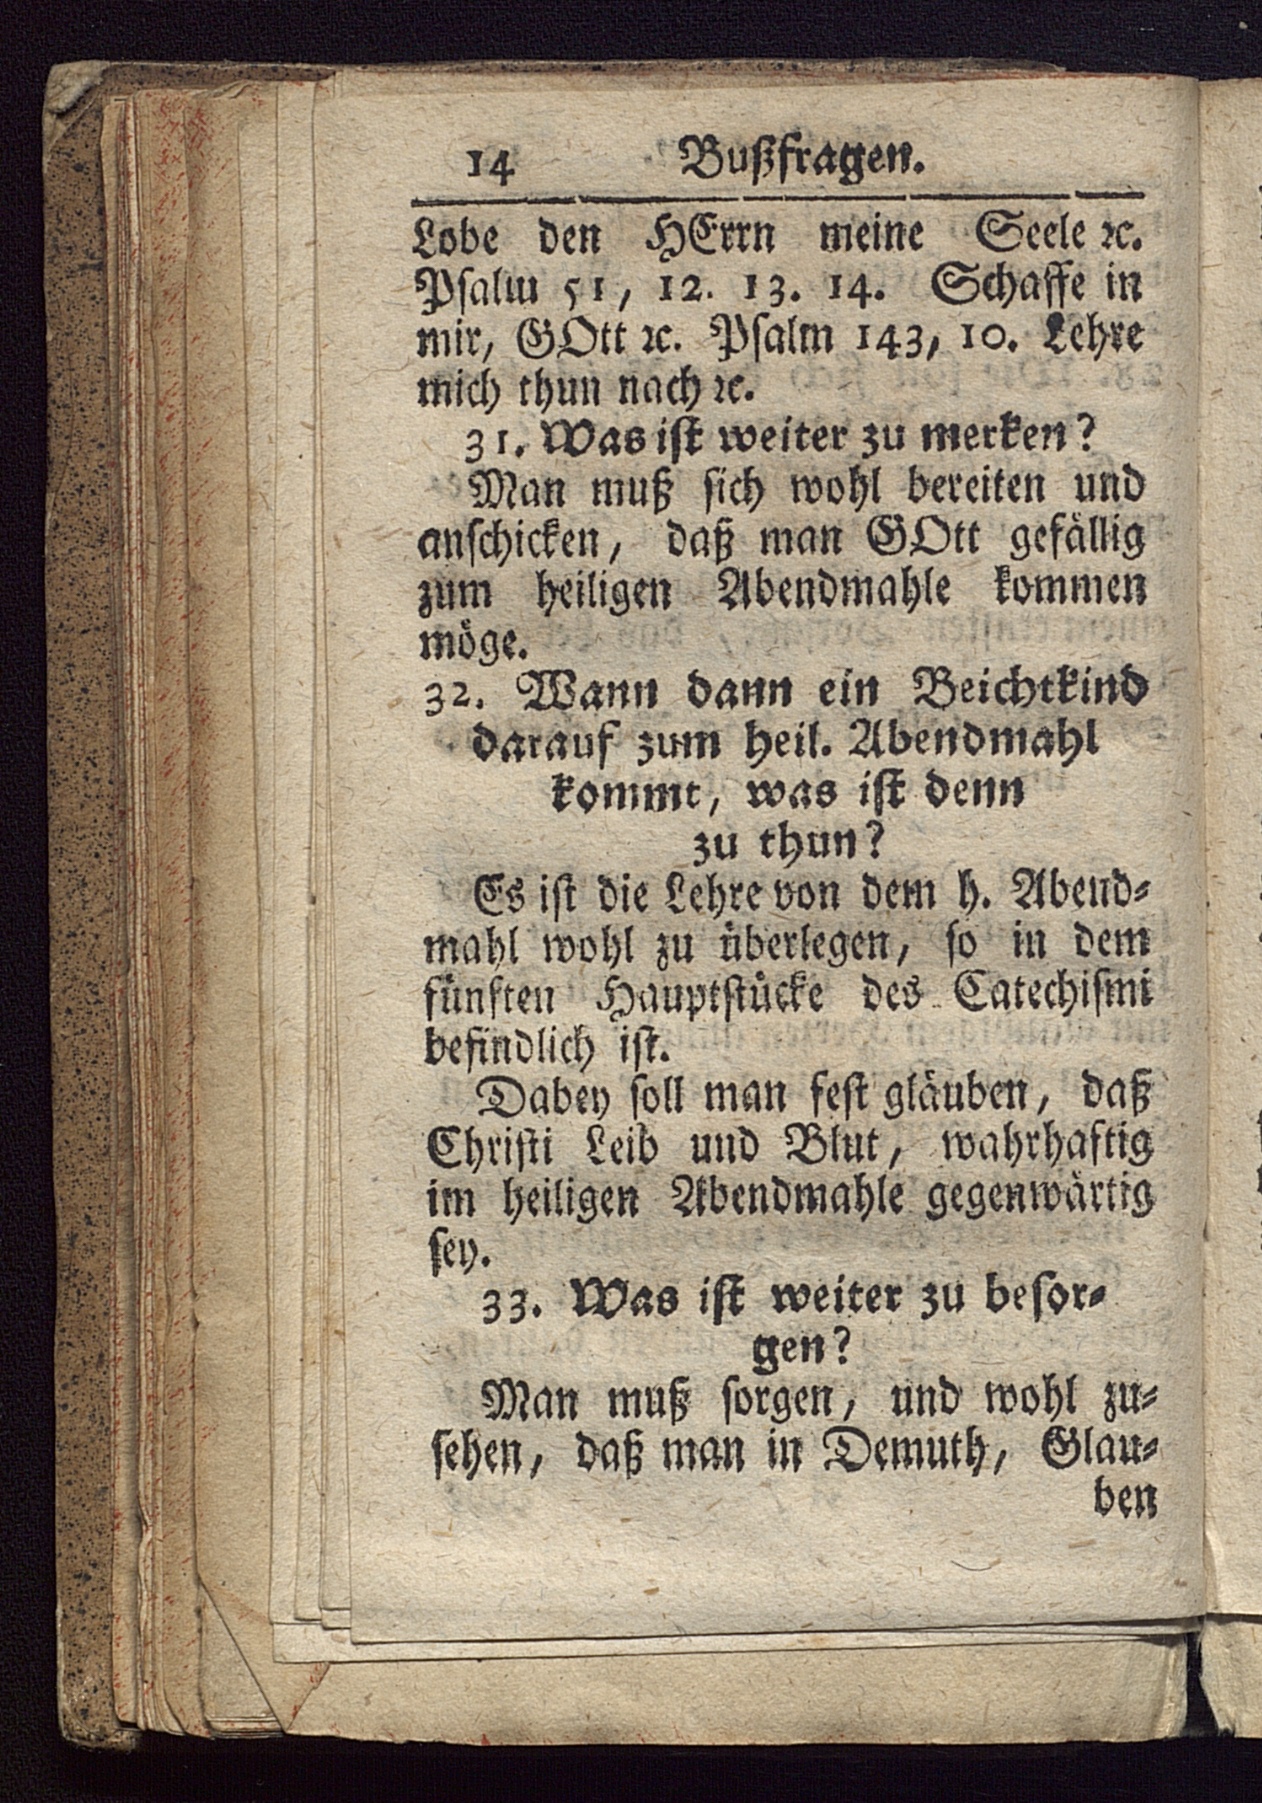 14 Bußfragen.
Lobe den HErrn meine Seele ꝛc.
Psalm 51, 12. 13. 14. Schaffe in
mir, GOtt ꝛc. Psalm 143, 10. Lehre
mich thun nach ꝛc.
31. Was ist weiter zu merken?
Man muß sich wohl bereiten und
anschicken, daß man GOtt gefällig
zum heiligen Abendmahle kommen
möge.
32. Wann dann ein Beichtkind
darauf zum heil. Abendmahl
kommt, was ist denn
zu thun?
Es ist die Lehre von dem h. Abend-
mahl wohl zu überlegen, so in dem
fünften Hauptstücke des Catechismi
befindlich ist.
Dabey soll man fest gläuben, daß
Christi Leib und Blut, wahrhaftig
im heiligen Abendmahle gegenwärtig
sey.
33. Was ist weiter zu besor-
gen?
Man muß sorgen, und wohl zu-
sehen, daß man in Demuth, Glau-
ben